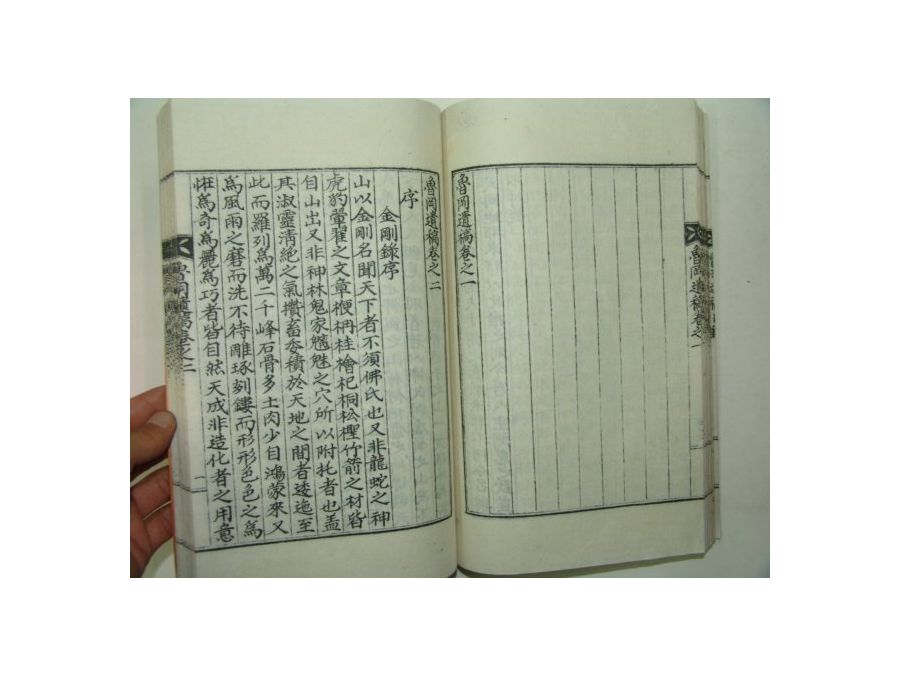 魯岡遺稿卷之一
魯岡遺稿卷之一
魯岡遺稿卷之二
序
金剛錄序
山以金剛名聞天下者不須佛氏也又非龍蛇之神
虎豹翬翟之文章楩枏桂檜杞桐松檉竹箭之材皆
自山出又非神林鬼家魑魅之穴所以附托者也盖
其淑靈淸絶之氣攢畜委積於天地之間者逶迤至
此而羅列爲萬二千峰石骨多土肉少自鴻蒙來又
爲風雨之磨而洗不待雕琢刻鏤而形形色色之爲
恠爲奇爲麗爲巧者皆自然天成非造化者之用意
魯岡遺稿卷之二
一